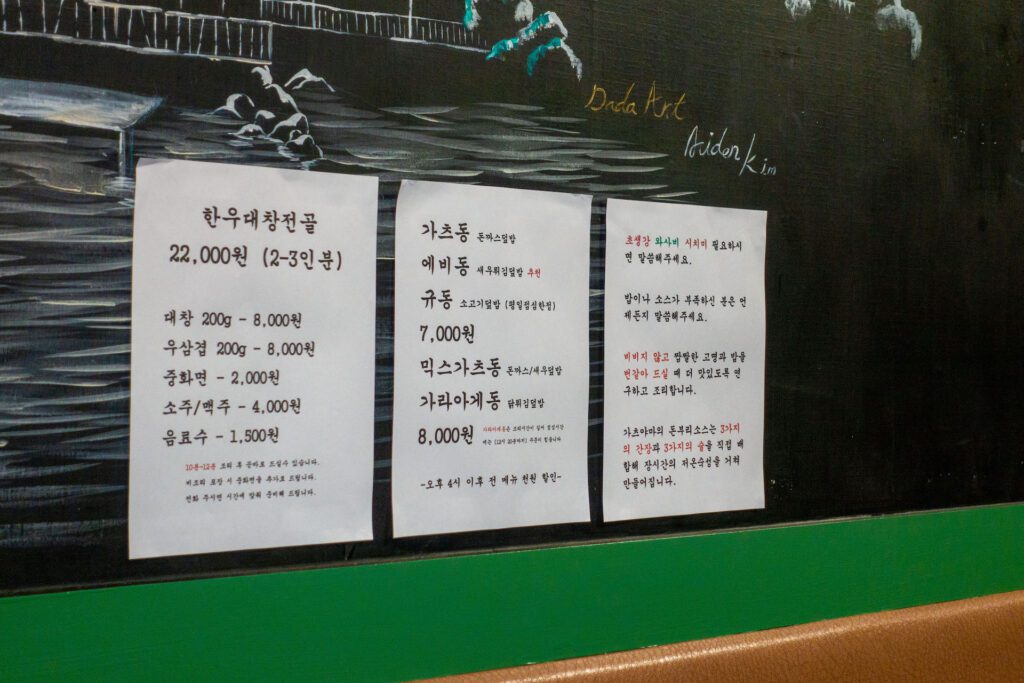 Dada Art
Aiden Kim
한우대창전골
22,000원 (2-3인분)
대창 200g - 8,000원
우삼겹 200g - 8,000원
중화면 - 2,000원
소주/맥주 - 4,000원
음료수 - 1,500원
10분-12분 조리 후 곧바로 드실수 있습니다.
비조리 포장 시 중화면을 추가로 드립니다.
전화 주시면 시간에 맞춰 준비해 드립니다.
가츠동 돈까스덮밥
에비동 새우튀김덮밥 추천
규동 소고기덮밥 (평일점심한정)
7,000원
믹스가츠동 돈까스/새우덮밥
가라아게동 닭튀김덮밥
8,000원 가라아게동은 조리시간이 길어 점심시간
에는 주문이 힘듭니다
-오후 4시 이후 전 메뉴 천원 할인-
초생강 와사비 시치미 필요하시
면 말씀해주세요.
밥이나 소스가 부족하신 분은 언
제든지 말씀해주세요.
비비지 않고 짭짤한 고명과 밥을
번갈아 드실 때 더 맛있도록 연
구하고 조리합니다.
가츠야마의 돈부리소스는 3가지
의 간장과 3가지의 술을 직접 배
합해 장시간의 저온숙성을 거쳐
만들어집니다.